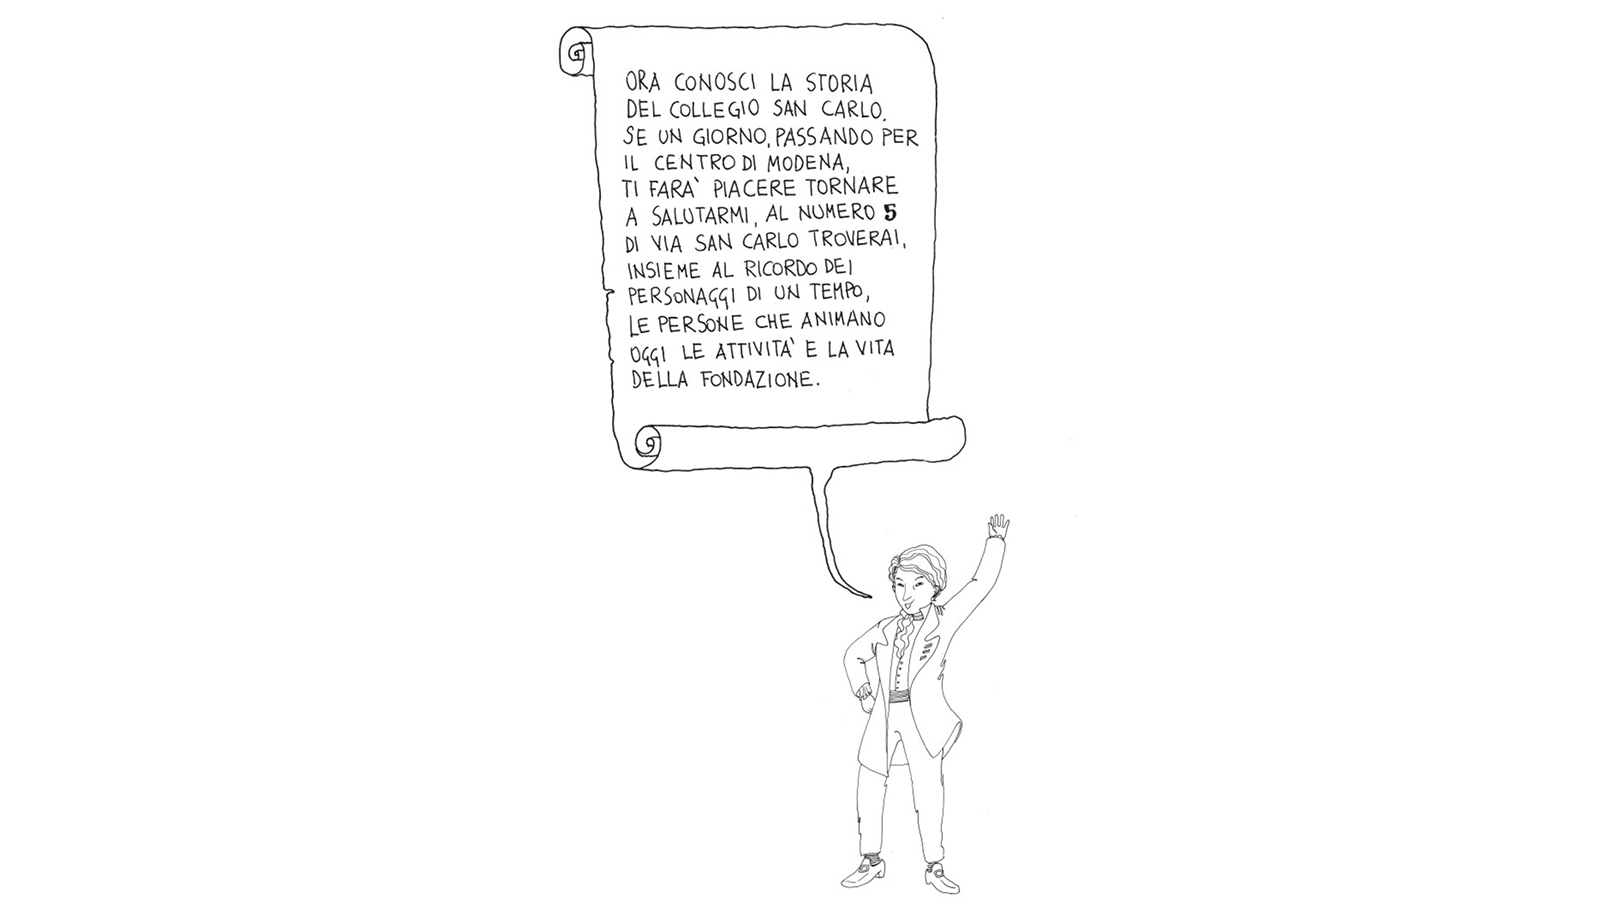 ORA CONOSCI LA STORIA
DEL COLLEGIO SAN CARLO.
SE UN GIORNO, PASSANDO PER
IL CENTRO DI MODENA,
TI FARA' PIACERE TORNARE
A SALUTARMI, AL NUMERO 5
DI VIA SAN CARLO TROVERAI,
INSIEME AL RICORDO DEI
PERSONAGGI DI UN TEMPO,
LE PERSONE CHE ANIMANO
OGGI LE ATTIVITA' E LA VITA
DELLA FONDAZIONE.